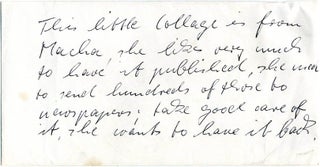 This little collage is from
Macha, she likes very much
to have it published, she used
to send hundreds of those to
newspapers; take good care of
it, she wants to have it back.